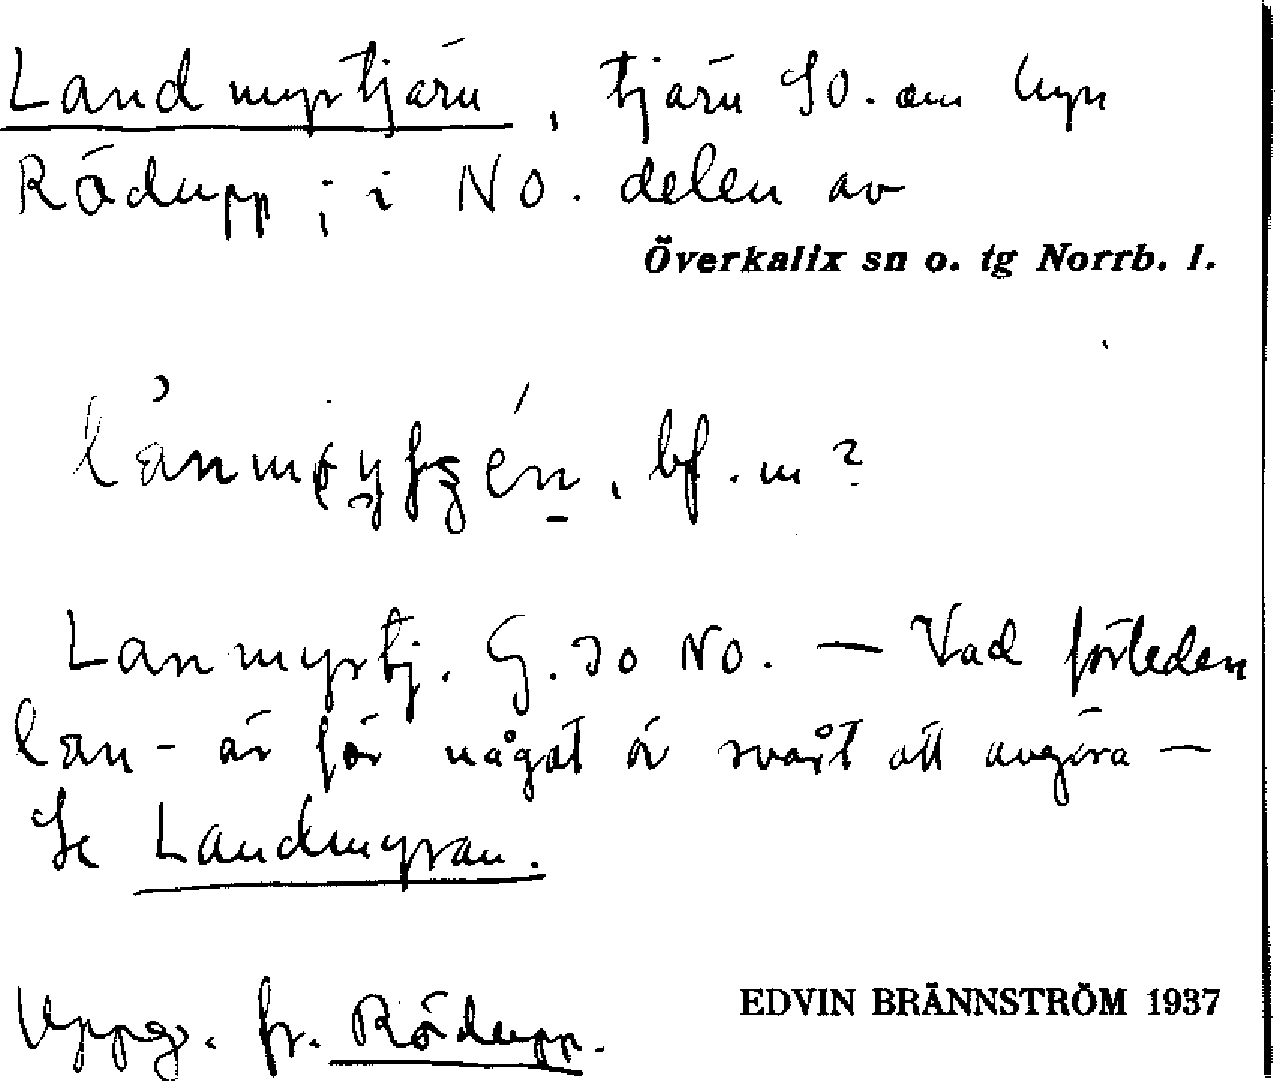 Landmyrtjärn, tjärn SO. om byn
Rödupp; i NO. delen av
Överkalix sn o. tg Norrb. l.
bf. m?
Lanmyrtj. G. 30 NO. — Vad förleden
lan- är för något är svårt att avgöra —
Se Landmyran.
Uppg. fr. Rödupp.
EDVIN BRÄNNSTRÖM 1937